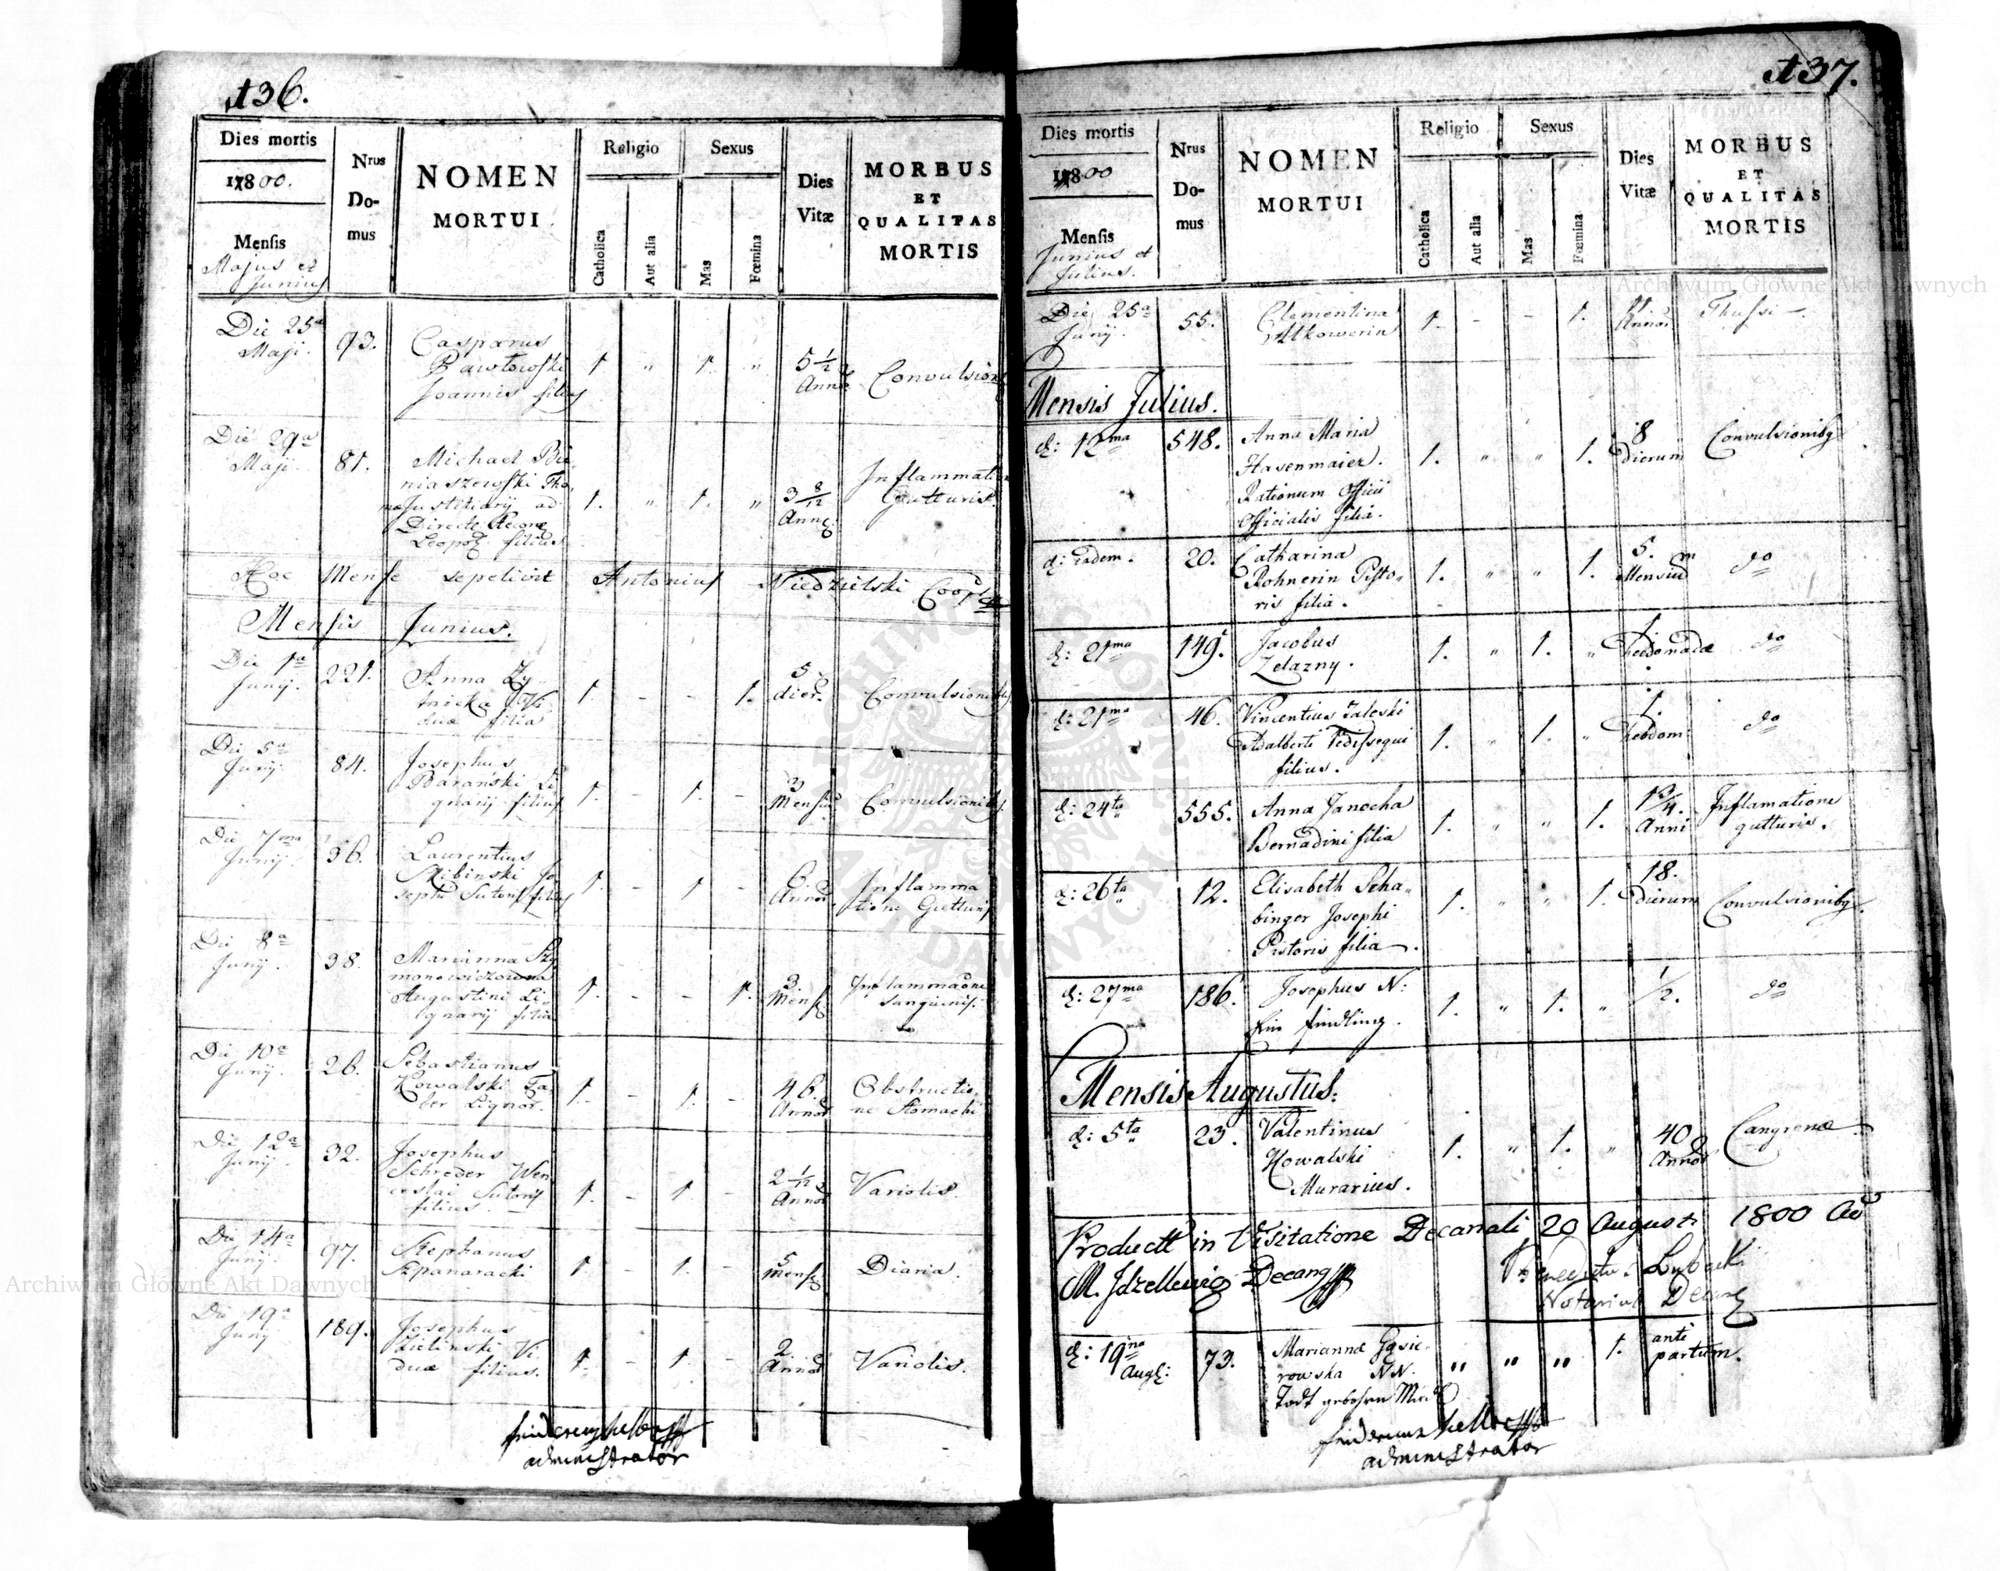 136.
Dies mortis
1800.
Mensis
Majus et
Junius
Nrus
Do-
mus
NOMEN
MORTUI
Religio
Catholica
Aut alia
Sexus
Mas
Fœmina
Dies
Vitæ
MORBUS
ET
QUALITAS
MORTIS
Die 25a
Maji.
93.
Casparus
Pawłowski
Joannis filius
1 " 1. "
5 1/2
Anno
Convulsion
Die 29a
Maji
81.
Michael Bie-
niaszewski Tho-
Justitiarij ad
Leopol filius
1. " 1. "
3 8/12
Ann
Inflammatio
Gutturis
Hoc Mense sepelivit Antonius Niedzielski Coop
Mensis Junius.
Die 1a
Junij.
221.
Anna Ly-
tnicka Vi-
duæ filia
1. - - 1.
5
dier.
Convulsionibus
Die 5a
Junij.
84.
Josephus
Barański Li-
gnarij filius
1. - 1. -
3
Mensiu
Convulsionibus
Die 7ma
Junij.
36.
Laurentius
Skibinski Jo-
sephi Sutoris filius
1. - 1. -
6
Annor.
Inflamma
tione Gutturis
Die 8a
Junij.
38.
Marianna Szy
monowiczowna
Augustini Li-
gnarij filia
1. - - 1.
3
Mens
Inflammaone
sanguinis.
Die 10a
Junij.
26.
Sebastianus
Kowalski Fa-
ber Lignar.
1. - 1. -
46.
Annor
Obstructio-
ne Stomachi
Die 12a
Junij.
32.
Josephus
Schreder Wen
ceslai Sutoris
filius.
1. - 1 -
2 1/12
Annor
Variolis.
Die 14a
Junij.
97.
Stephanus
Szpanaracki
1. - 1. -
5
Mens
Diaria.
Die 19a
Junij
189.
Josephus
Zielinski Vi-
duæ filius.
1. - 1. -
2.
Annor
Variolis.
administrator
137.
Dies mortis
1800
Mensis
Junius et
Julius.
Nrus
Do-
mus
NOMEN
MORTUI
Religio
Catholica
Aut alia
Sexus
Mas
Fœmina
Dies
Vitæ
MORBUS
ET
QUALITAS
MORTIS
Die 25a
Junij.
55.
Clementina
1. - - 1.
Annor
Thussi -
Mensis Julius.
d: 12ma
548.
Anna Maria
Hasenmaier.
Rationum Officii
Officialis filia.
1. " " 1.
8
dierum
Convulsionibg
d: eadem.
20.
Catharina
Rohnerin Pisto-
ris filia.
1. " " 1.
5.
Mensium
do
d: 21ma
149.
Jacobus
Zelazny.
1. " 1. "
1
hebdomadæ
do
d: 21ma
46.
Vincentius Zaleski
Adalberti Pedissequi
filius.
1. " 1. "
1.
hebdom
do
d: 24ta
555.
Anna Janocha
Bernadini filia
1. " " 1.
1 3/4.
Anni
Inflamatione
gutturis.
d: 26ta
12.
Elisabeth Scha-
binger Josephi
Pistoris filia.
1. " " 1.
18.
dierum
Convulsionibg.
d: 27ma
186.
Josephus N:
Ein findling.
1. " 1. "
1/2.
do
Mensis Augustus:
d: 5ta
23.
Valentinus
Kowalski
Murarius.
1. " 1. "
40
Annor
Cangrenæ
Product in Visitatione Decanali 20 Augusti 1800 Ao
M. Decang
Notarius Decang
d: 19na
Augi:
73.
Marianna Gąsie-
rowska NN.
Todt gebohren
" " " 1.
anti
partum.
administrator
Archiwum Główne Akt Dawnych
Archiwum Główne Akt Dawnych
ARCHIWUM GŁÓWNE
AKT DAWNYCH